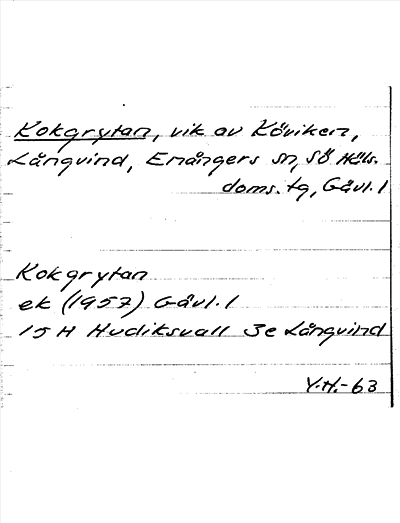 Kokgrytan, vik av Köviken,
Långvind, Enångers sn, Sö Häls.
doms. tg, Gävl. l
Kokgrytan
ek (1957) Gävl. l
15 H Hudiksvall 3e Långvind
Y.H.-63